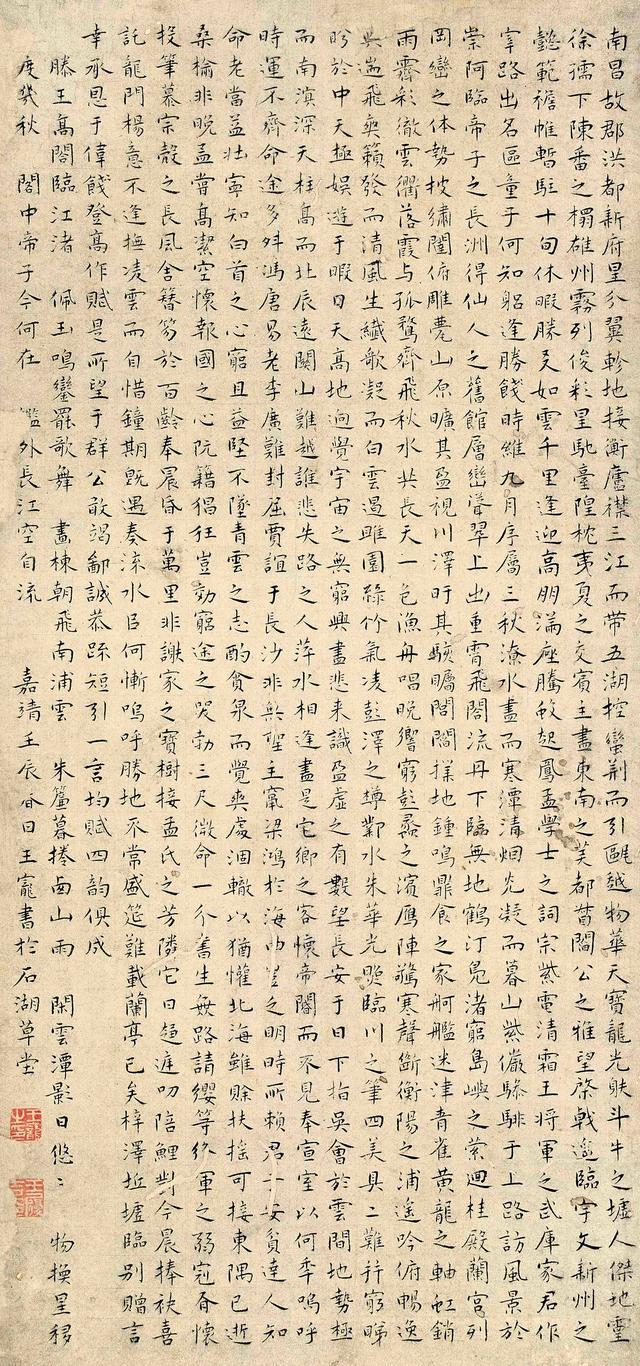 南昌故郡洪都新府星分翼軫地接衡廬襟三江而帶五湖控蠻荆而引甌越物華天寶龍光䠶斗牛之墟人傑地靈
徐孺下陳蕃之榻雄州霧列俊彩星馳臺隍枕夷夏之交賓主盡東南之美都督閻公之雅望棨戟遙臨宇文新州之
懿範襜帷暫駐十旬休暇勝友如雲千里逢迎高朋滿座騰蛟起鳳孟學士之詞宗紫電清霜王將軍之武庫家君作
宰路出名區童子何知躬逢勝餞時維九月序屬三秋潦水盡而寒潭清烟光凝而暮山紫儼驂騑于上路訪風景於
崇阿臨帝子之長洲得仙人之舊館層巒聳翠上出重霄飛閣流丹下臨無地鶴汀鳧渚窮島嶼之縈迴桂殿蘭宮列
岡巒之体勢披繡闥俯雕甍山原曠其盈視川澤盱其駭矚閭閻撲地鐘鳴鼎食之家舸艦迷津青雀黃龍之軸虹銷
雨霽彩徹雲衢落霞与孤鶩齊飛秋水共長天一色漁舟唱晚響窮彭蠡之濱鴈陣驚寒聲斷衡陽之浦遙吟俯暢逸
興遄飛爽籟發而清風生纖歌凝而白雲遏睢園綠竹氣凌彭澤之樽鄴水朱華光照臨川之筆四美具二難并窮睇
眄於中天極娛遊于暇日天高地迥覺宇宙之無窮興盡悲来識盈虛之有數望長安于日下指吳會於雲間地勢極
而南溟深天柱高而北辰遠關山難越誰悲失路之人萍水相逢盡是它鄉之客懷帝閽而不見奉宣室以何年嗚呼
時運不齊命途多舛馮唐易老李廣難封屈賈誼于長沙非無聖主竄梁鴻於海曲豈乏明時所賴君子安貧達人知
命老當益壯寧知白首之心窮且益堅不墜青雲之志酌貪泉而覺爽處涸轍以猶懽北海雖賒扶搖可接東隅已逝
桑榆非晚孟嘗高潔空懷報國之心阮籍猖狂豈効窮途之哭勃三尺微命一介書生無路請纓等終軍之弱冠有懷
投筆慕宗慤之長風舍簪笏於百齡奉晨昏于萬里非謝家之寶樹接孟氏之芳隣它日趨庭叨陪鯉對今晨捧袂喜
託龍門楊意不逢撫凌雲而自惜鐘期既遇奏流水臣何慚嗚呼勝地不常盛筵難載蘭亭已矣梓澤坵墟臨別贈言
幸承恩于偉餞登高作賦是所望于群公敢竭鄙誠恭疏短引一言均賦四韻俱成
滕王高閣臨江渚 佩玉鳴鑾罷歌舞 畫棟朝飛南浦雲 朱簾暮捲西山雨 閑雲潭影日悠〻 物換星移
度幾秋 閣中帝子今何在 檻外長江空自流 嘉靖壬辰春日王寵書於石湖草堂